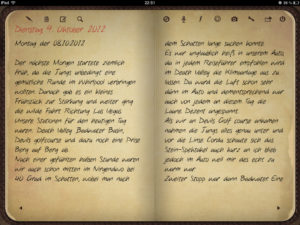 iPad
22:51
Dienstag 4. Oktober 2022
Montag der 08.10.2012
Der nächste Morgen startete ziemlich
früh, da die Jungs unbedingt eine
gemütliche Runde im Whirlpool verbringen
wollten. Danach gab es ein kleines
Frühstück zur Stärkung und weiter ging
die wilde Fahrt Richtung Las Vegas.
Unsere Stationen für den heutigen Tag
waren: Death Valley Badwater Basin,
Devils golfcourse und dazu noch eine Prise
Berg auf Berg ab.
Nach einer gefühlten halben Stunde waren
wir auch schon mitten im Nirgendwo bei
40 Grad im Schatten, wobei man nach
dem Schatten lange suchen konnte.
Es war unglaublich heiß in unserem Auto,
da in jedem Reiseführer empfohlen wird
im Death Valley die Klimaanlage aus zu
lassen. Da wird die Luft schon sehr
dünn im Auto und dementsprechend war
auch von jedem an diesem Tag die
Laune Dezent angespannt.
Als wir an Devils Golf course ankamen
nahmen die Jungs alles genau unter und
vor die Linse. Conny schaute sich das
Stein-Spektakel auch kurz an ich blieb
jedoch im Auto weil mir das echt zu
warm war.
Zweiter Stopp war dann Badwater. Eine